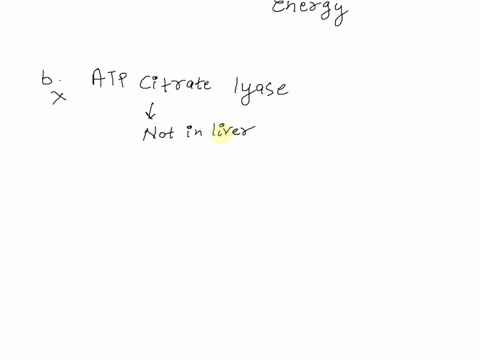 Energy
b. ATP Citrate lyase
x
↓
Not in liver